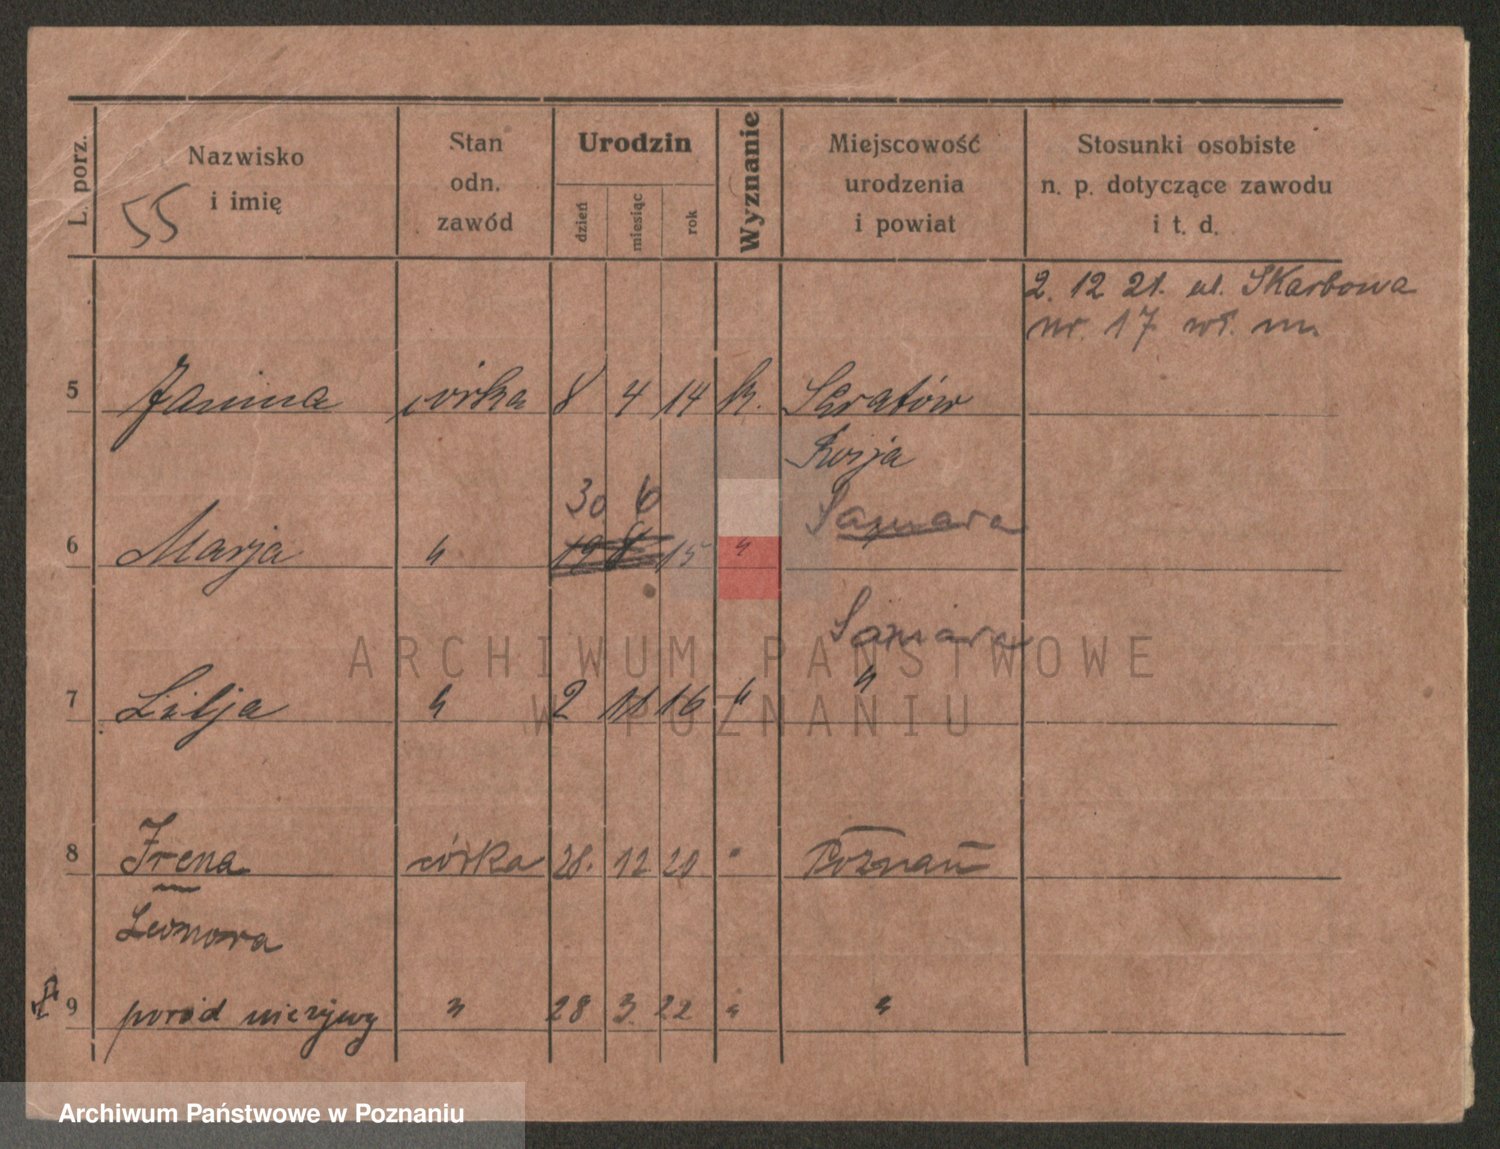 L. porz.
Nazwisko
i imię
55
Stan
odn.
zawód
Urodzin
dzień
miesiąc
rok
Wyznanie
Miejscowość
urodzenia
i powiat
Stosunki osobiste
n. p. dotyczące zawodu
i t. d.
2. 12 21. ul. Skarbowa
nr. 17 wł. m.
5 Janina córka 8 4 14 k. Saratów
Rosja
30 6 Samara
6 Marja " 19 8 15 "
Samara
7 Lilja " 2 11 16 " "
8 Irena córka 28. 12 20 " Poznań
Leonora
9 poród nieżywy " 28 3. 22 " "
ARCHIWUM PAŃSTWOWE
W POZNANIU
Archiwum Państwowe w Poznaniu